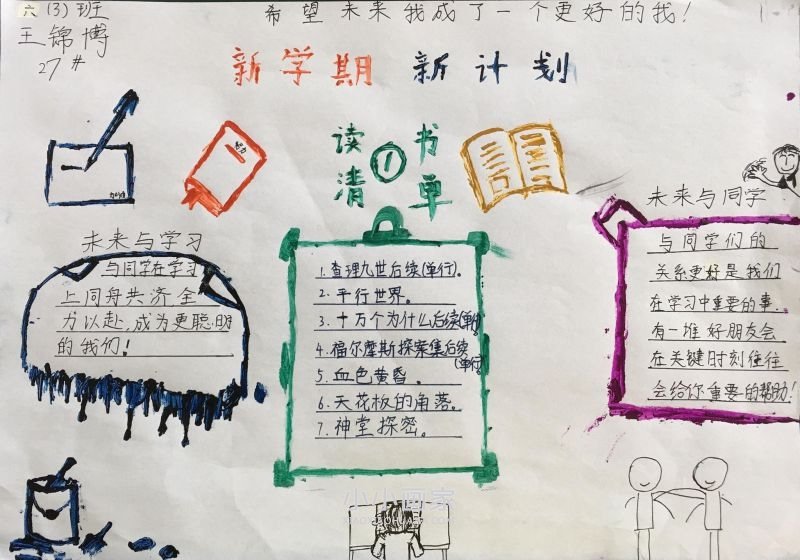 六(3)班
王锦博
27#
希望未来我成了一个更好的我!
新学期 新计划
读书
①
清单
努力
未来与学习
与同学在学习
上同舟共济全
力以赴,成为更聪明
的我们!
1.查理九世后续(单行)。
2.平行世界。
3.十万个为什么后续(单行)
4.福尔摩斯探案集后续
(单行)
5.血色黄昏。
6.天花板的角落。
7.神堂探密。
未来与同学
与同学们的
关系更好是我们
在学习中重要的事
有一堆好朋友会
在关键时刻往往
会给你重要的帮助!
小小画家